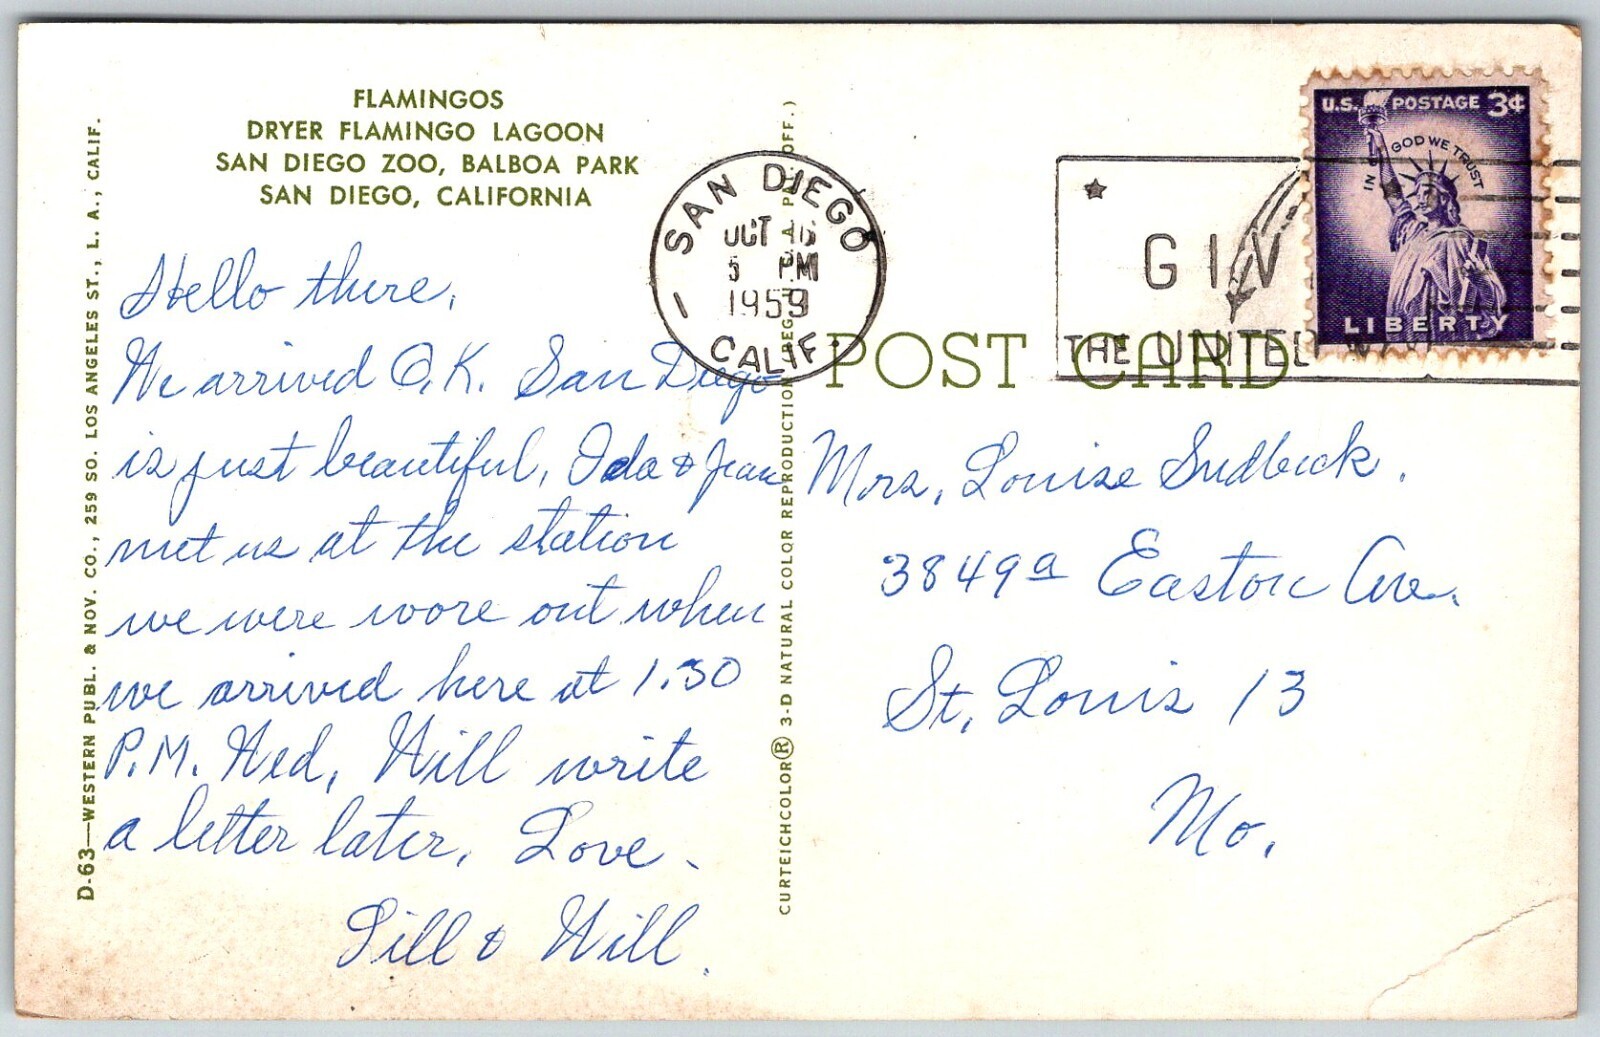 FLAMINGOS
DRYER FLAMINGO LAGOON
SAN DIEGO ZOO, BALBOA PARK
SAN DIEGO, CALIFORNIA
D-63—WESTERN PUBL. & NOV. CO., 259 SO. LOS ANGELES ST., L. A., CALIF.
Hello there,
We arrived O.K. San Diego
is just beautiful, Ida & Jean
met us at the station
we were wore out when
we arrived here at 1.30
P.M. Wed, Will write
a letter later. Love
Lill & Will.
CURTEICHCOLOR® 3-D NATURAL COLOR REPRODUCTION
SAN DIEGO
OCT 16
5 PM
1959
1 CALIF.
GIV
THE UNITED WAY
U.S. POSTAGE 3¢
IN GOD WE TRUST
LIBERTY
POST CARD
Mrs. Louise Sudbeck.
3849a Easton Ave.
St. Louis 13
Mo.